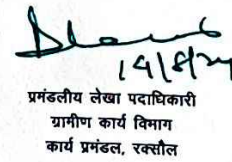 प्रमंडलीय लेखा पदाधिकारी
ग्रामीण कार्य विभाग
कार्य प्रमंडल, रक्सौल